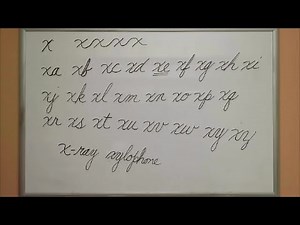 x xxxx
xa xb xc xd xe xf xg xh xi
xj xk xl xm xn xo xp xq
xr xs xt xu xv xw xy xy
x-ray xylophone